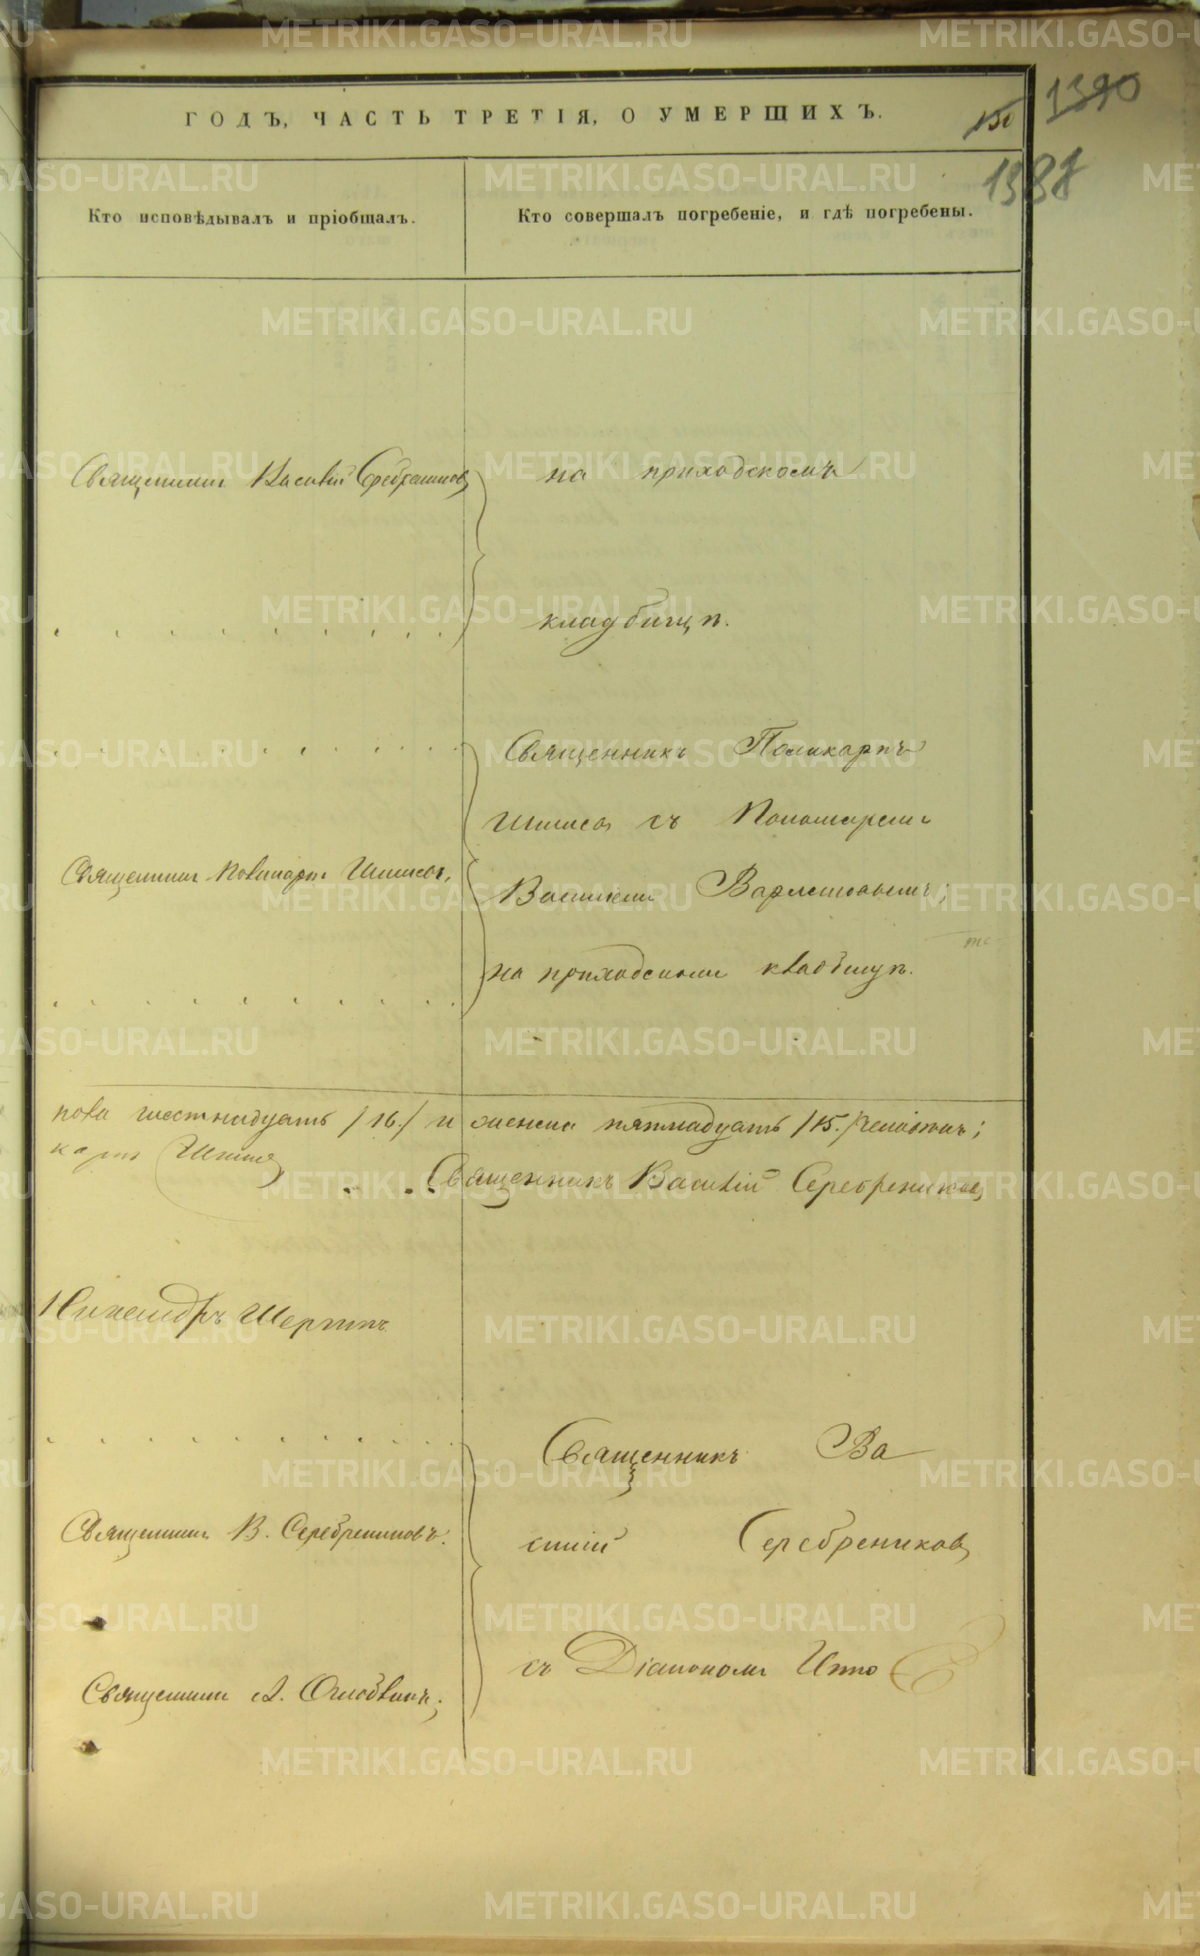 ГОДЪ, ЧАСТЬ ТРЕТІЯ, О УМЕРШИХЪ.
1390
1387
Кто исповѣдывалъ и пріобщалъ.
Кто совершалъ погребеніе, и гдѣ погребены.
Священникъ Василій Серебрениковъ
на приходскомъ
кладбищѣ.
Священникъ Поликарпъ
Шишевъ съ Пономаремъ
Священникъ Поликарпъ Шишевъ,
Василіемъ
на приходскомъ кладбищѣ.
пола шестнадцать /16./ и женска пятнадцать /15./ человѣкъ;
карпъ Шишев
Священникъ Василій Серебрениковъ
Священникъ Ва
Священникъ В. Серебрениковъ.
силій Серебрениковъ
съ Діакономъ Иппо
Священникъ А.
METRIKI.GASO-URAL.RU